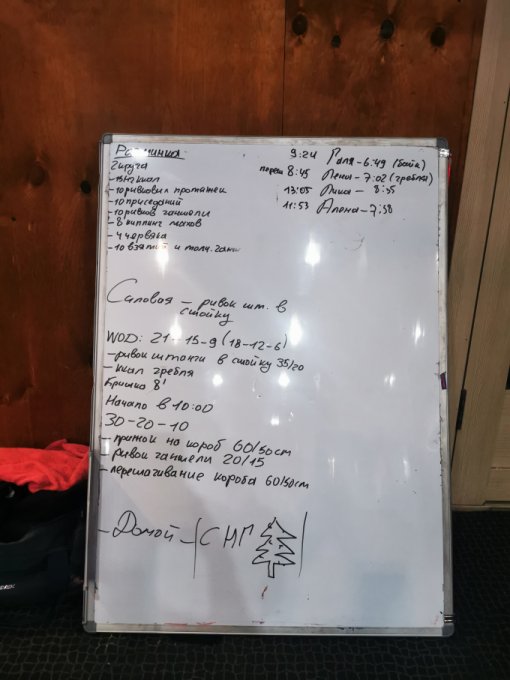 Разминка
2 круга
-15/12 ккал
-10 рывковых протяжек
-10 приседаний
-10 рывков гантели
-8 киппинг махов
-4 червяка
-10 взятий и толч. гант
9:24 Галя-6:49 (байк)
8:45 Лена-7:02 (гребля)
13:05 Лика - 8:35
11:53 Алена-7:58
Силовая - рывок шт. в
стойку
WOD: 21-15-9 (18-12-6)
-рывок штанги в стойку 35/20
-ккал гребля
Крышка 8'
Начало в 10:00
30-20-10
-прыжок на короб 60/50см
-рывок гантели 20/15
-перешагивание короба 60/50см
-Домой-